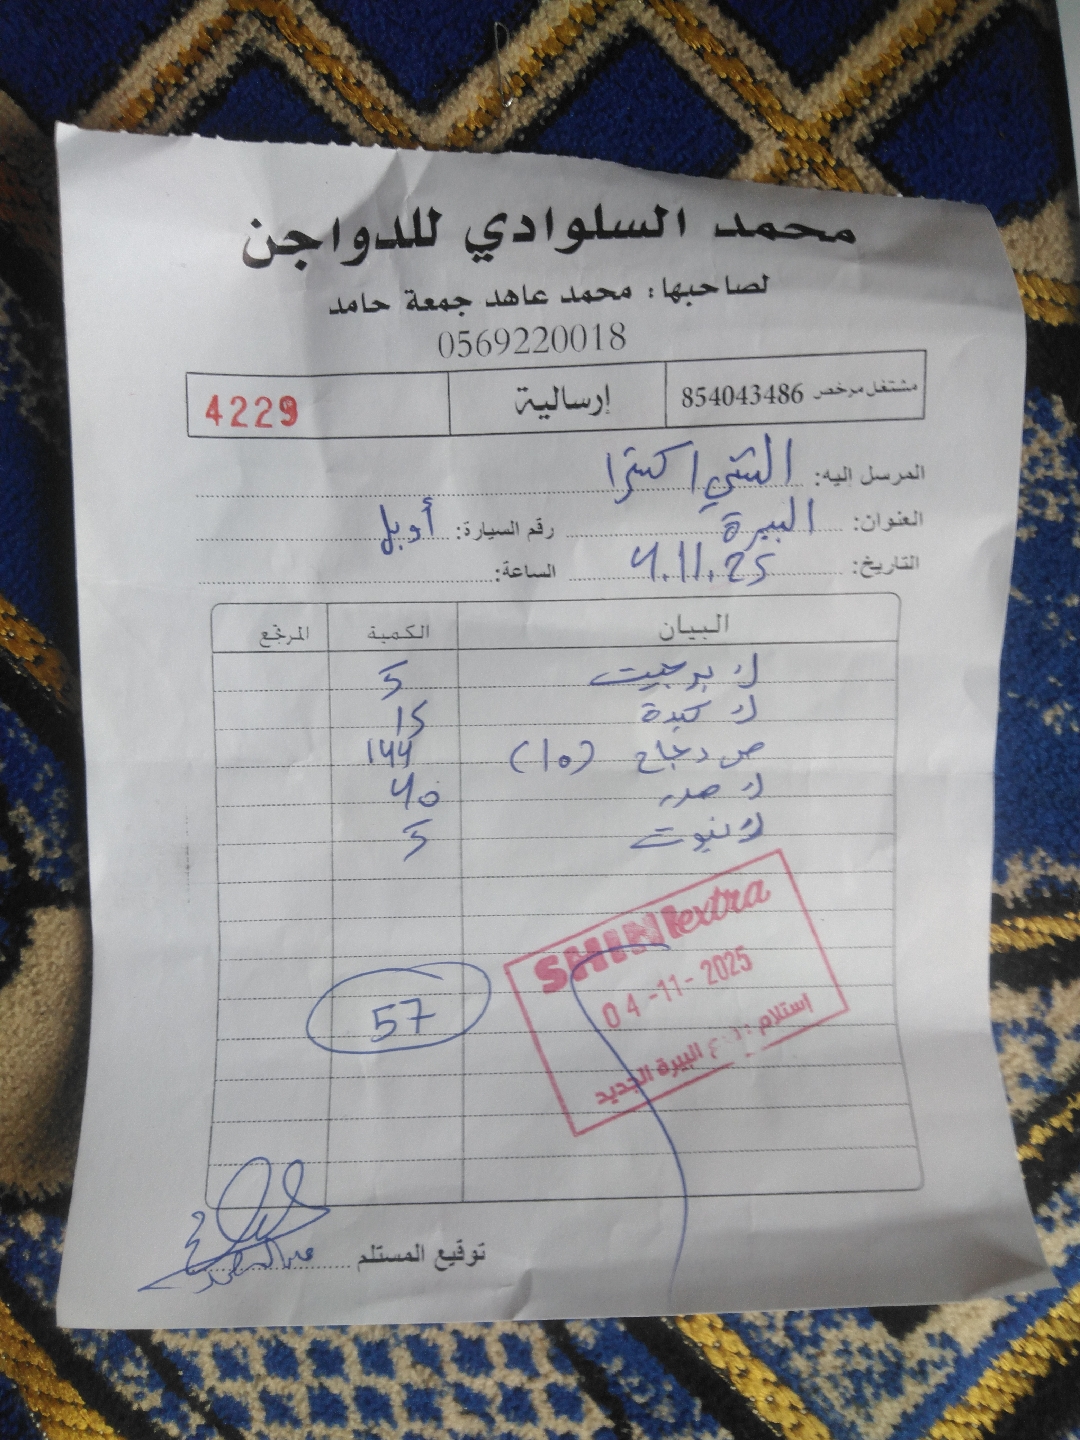 محمد السلوادي للدواجن
لصاحبها: محمد عاهد جمعة حامد
0569220018
مشتغل مرخص 854043486 إرسالية 4229
المرسل إليه: الشني اكسترا
العنوان: البيرة رقم السيارة: أوبل
التاريخ: 4.11.25 الساعة:
البيان الكمية المرتجع
ك برجيت 5
ك كبدة 15
ص دجاج (10) 144
ك صدر 40
ك 5
SHINI extra
04-11-2025
57
استلام البيرة الجديد
توقيع المستلم